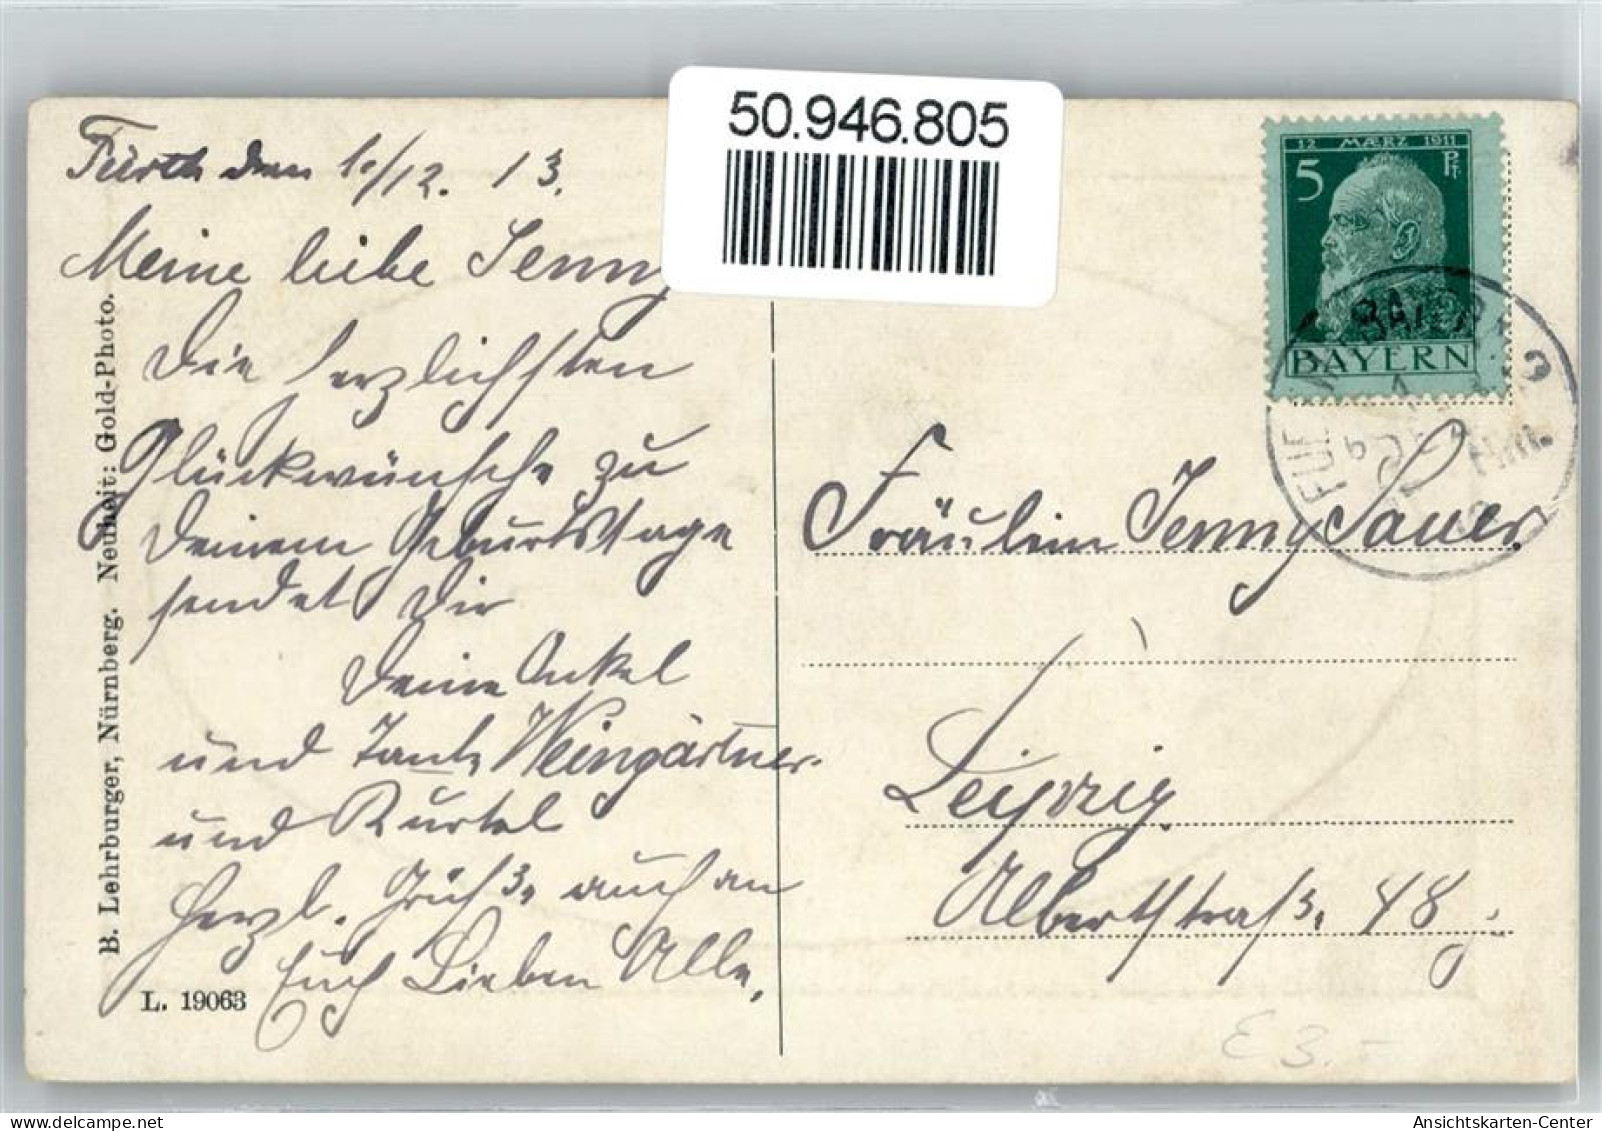 50.946.805
Fürth den 1./12. 13.
Meine liebe Jenny
Die herzlichsten
Glückwünsche zu
Deinem Geburtstage
sendet Dir
Deine Onkel
und Tante Weingärtner
und Kurtel
Herzl. Grüße, auch an
Euch Lieben Alle,
B. Lehrburger, Nürnberg. Neuheit: Gold-Photo.
L. 19063
12 MÆRZ 1911
5 Pf.
BAYERN
Fräulein Jenny Sauer
Leipzig
Albertstraße, 48
E 3.-
Ansichtskarten-Center